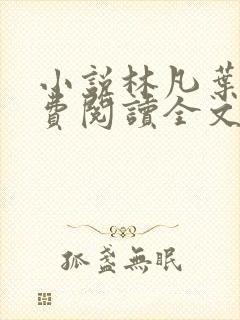 小說林凡葉
費閱讀全文
孤盞無眠